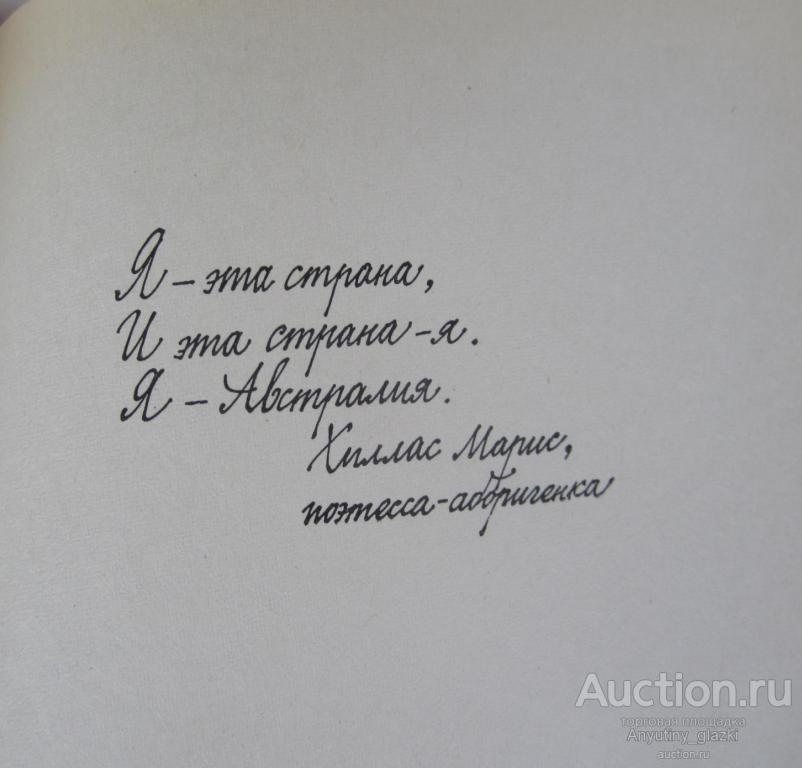 Я – эта страна,
И эта страна – я.
Я – Австралия.
Хиллас Марис,
поэтесса-аборигенка
Auction.ru
торговая площадка
Anyutiny_glazki
auction.ru